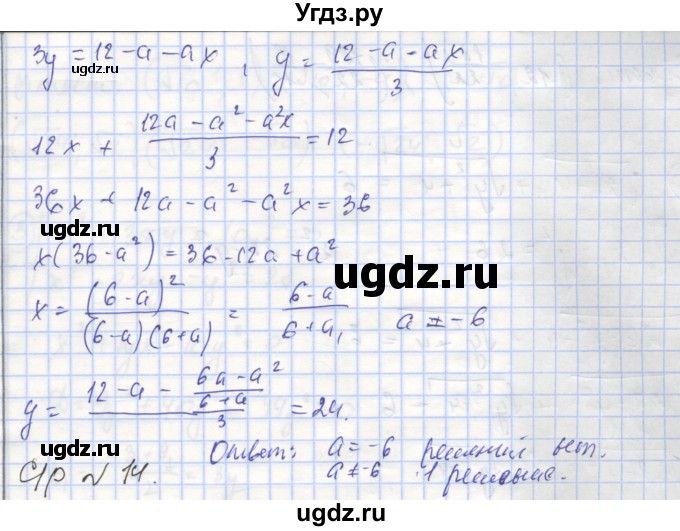 Угдз.ру
3y = 12 - a - ax, y = (12 - a - ax)/3
ugdz.ru
12x + (12a - a² - a²x)/3 = 12
36x + 12a - a² - a²x = 36
ugdz.ru
x(36 - a²) = 36 - 12a + a²
ugdz.ru
x = (6 - a)²/((6 - a)(6 + a)) = (6 - a)/(6 + a), a ≠ -6
y = (12 - a - (6a - a²)/(6 + a))/3 = 24.
ugdz.ru
Ответ: a = -6 решений нет.
a ≠ -6 1 решение.
С/Р № 14.
ugdz.ru